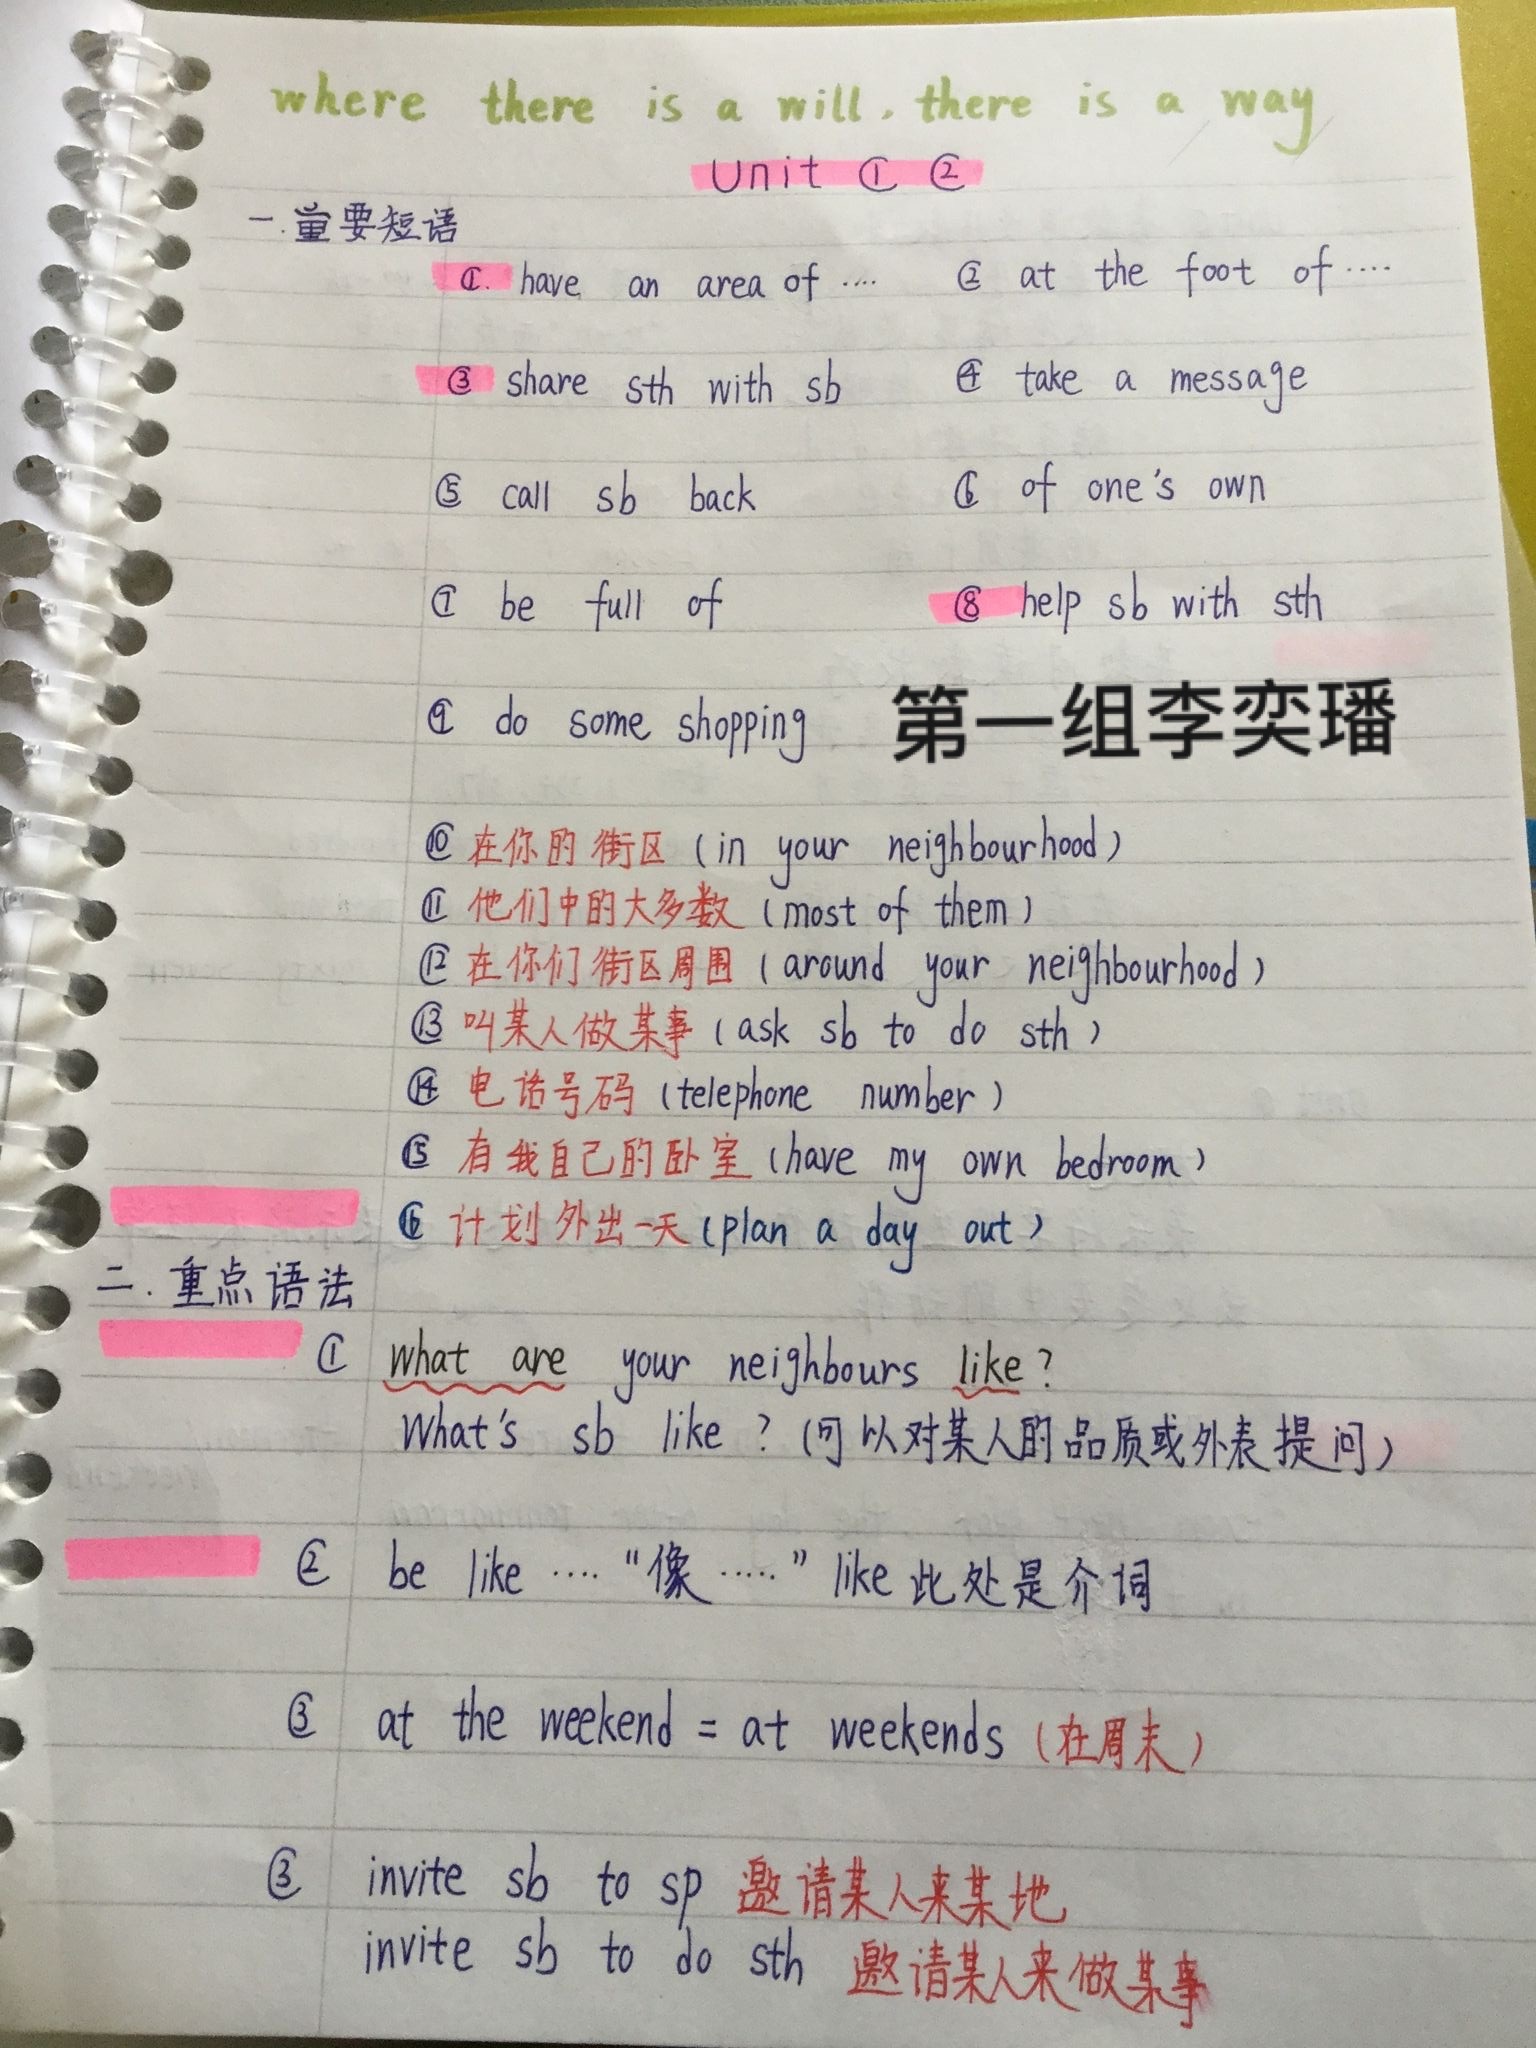 where there is a will, there is a way
Unit ① ②
一.重要短语
①. have an area of .... ② at the foot of ....
③ share sth with sb ④ take a message
⑤ call sb back ⑥ of one's own
⑦ be full of ⑧ help sb with sth
⑨ do some shopping 第一组李奕璠
⑩ 在你的街区 (in your neighbourhood)
⑪ 他们中的大多数 (most of them)
⑫ 在你们街区周围 (around your neighbourhood)
⑬ 叫某人做某事 (ask sb to do sth)
⑭ 电话号码 (telephone number)
⑮ 有我自己的卧室 (have my own bedroom)
⑯ 计划外出一天 (plan a day out)
二.重点语法
① what are your neighbours like?
What's sb like? (可以对某人的品质或外表提问)
② be like .... “像 .....” like 此处是介词
③ at the weekend = at weekends (在周末)
③ invite sb to sp 邀请某人来某地
invite sb to do sth 邀请某人来做某事